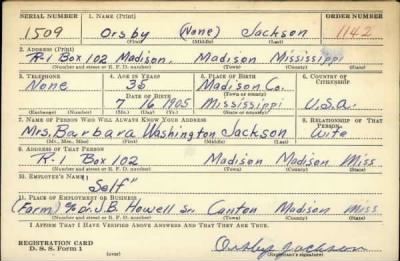 SERIAL NUMBER 1. NAME (Print) ORDER NUMBER
1509 Orsby (None) Jackson 1142
(First) (Middle) (Last)
2. ADDRESS (Print)
R-1 Box 102 Madison, Madison Mississippi
(Number and street or R. F. D. number) (Town) (County) (State)
3. TELEPHONE 4. AGE IN YEARS 5. PLACE OF BIRTH 6. COUNTRY OF CITIZENSHIP
None 35 Madison Co.
DATE OF BIRTH (Town or county)
7 16 1905 Mississippi U.S.A.
(Exchange) (Number) (Mo.) (Day) (Yr.) (State or country)
7. NAME OF PERSON WHO WILL ALWAYS KNOW YOUR ADDRESS 8. RELATIONSHIP OF THAT PERSON
Mrs. Barbara Washington Jackson Wife
(Mr., Mrs., Miss) (First) (Middle) (Last)
9. ADDRESS OF THAT PERSON
R-1 Box 102 Madison Madison Miss
(Number and street or R. F. D. number) (Town) (County) (State)
10. EMPLOYER'S NAME
"Self"
11. PLACE OF EMPLOYMENT OR BUSINESS
(Farm) % Dr. J.B. Howell Sr. Canton Madison Miss
(Number and street or R. F. D. number) (Town) (County) (State)
I AFFIRM THAT I HAVE VERIFIED ABOVE ANSWERS AND THAT THEY ARE TRUE.
REGISTRATION CARD
D. S. S. Form 1 (over) Orsby Jackson
(Registrant's signature)